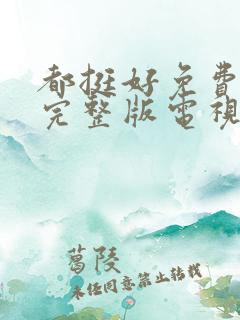 都挺好免费
完整版电视
葛陵
未经同意禁止转载